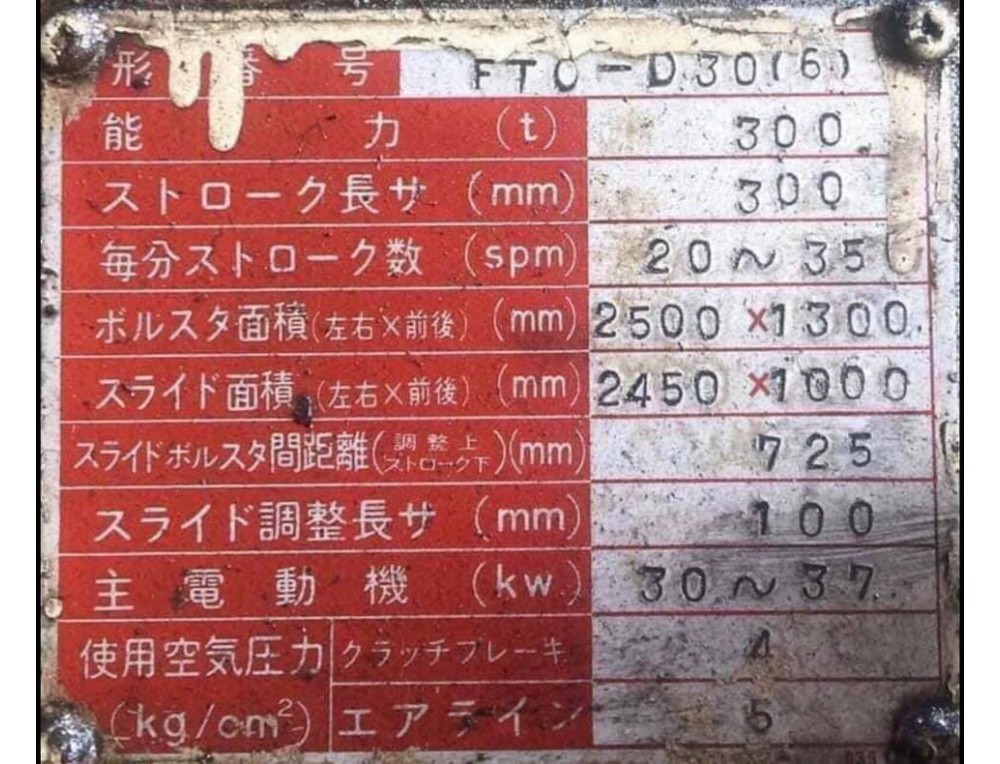 形 番 号 FTO-D30(6)
能 力 (t) 300
ストローク長サ (mm) 300
毎分ストローク数 (spm) 20～35
ボルスタ面積(左右×前後) (mm) 2500×1300
スライド面積(左右×前後) (mm) 2450×1000
スライドボルスタ間距離(調整上ストローク下)(mm) 725
スライド調整長サ (mm) 100
主電動機 (kw) 30～37
使用空気圧力 クラッチブレーキ 4
(kg/cm²) エアライン 5